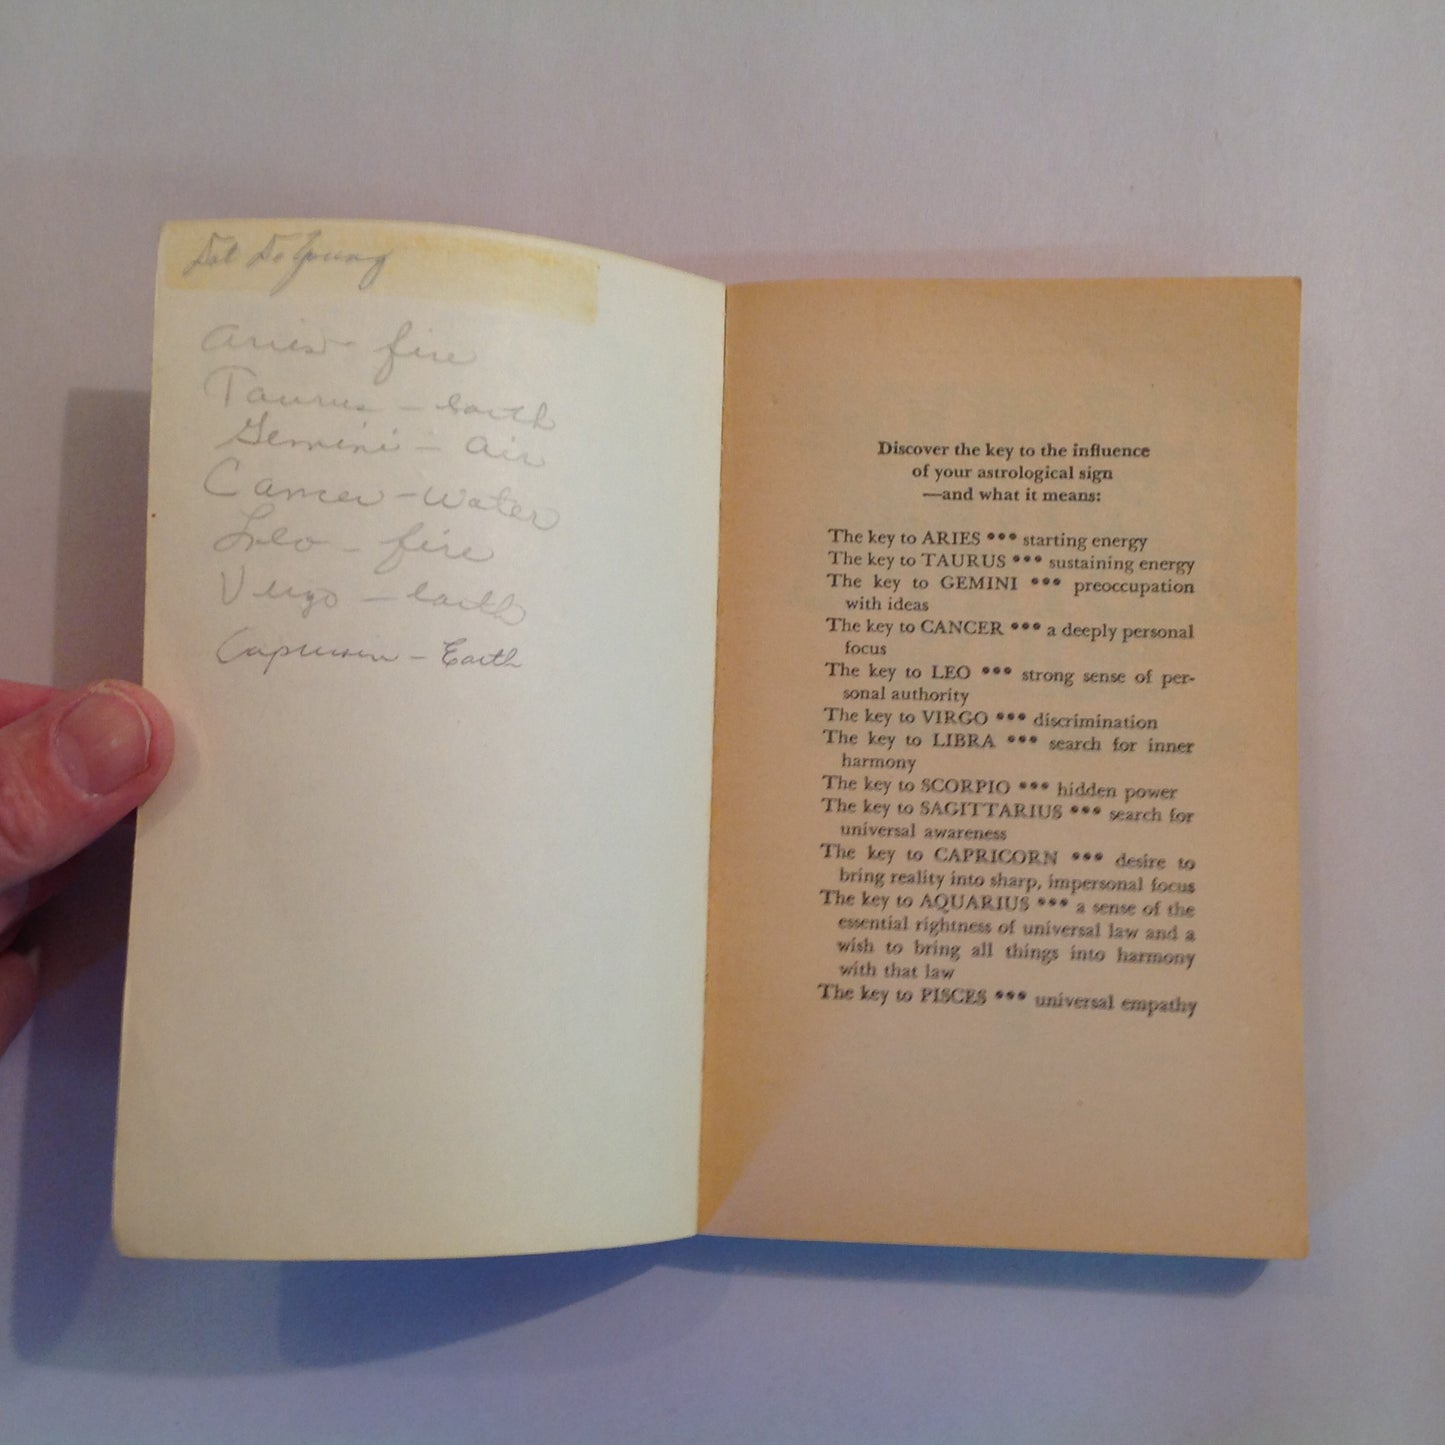 Dot De Young
Aries - fire
Taurus - Earth
Gemini - Air
Cancer - Water
Leo - fire
Virgo - Earth
Capricorn - Earth
Discover the key to the influence
of your astrological sign
—and what it means:
The key to ARIES ••• starting energy
The key to TAURUS ••• sustaining energy
The key to GEMINI ••• preoccupation
with ideas
The key to CANCER ••• a deeply personal
focus
The key to LEO ••• strong sense of per-
sonal authority
The key to VIRGO ••• discrimination
The key to LIBRA ••• search for inner
harmony
The key to SCORPIO ••• hidden power
The key to SAGITTARIUS ••• search for
universal awareness
The key to CAPRICORN ••• desire to
bring reality into sharp, impersonal focus
The key to AQUARIUS ••• a sense of the
essential rightness of universal law and a
wish to bring all things into harmony
with that law
The key to PISCES ••• universal empathy